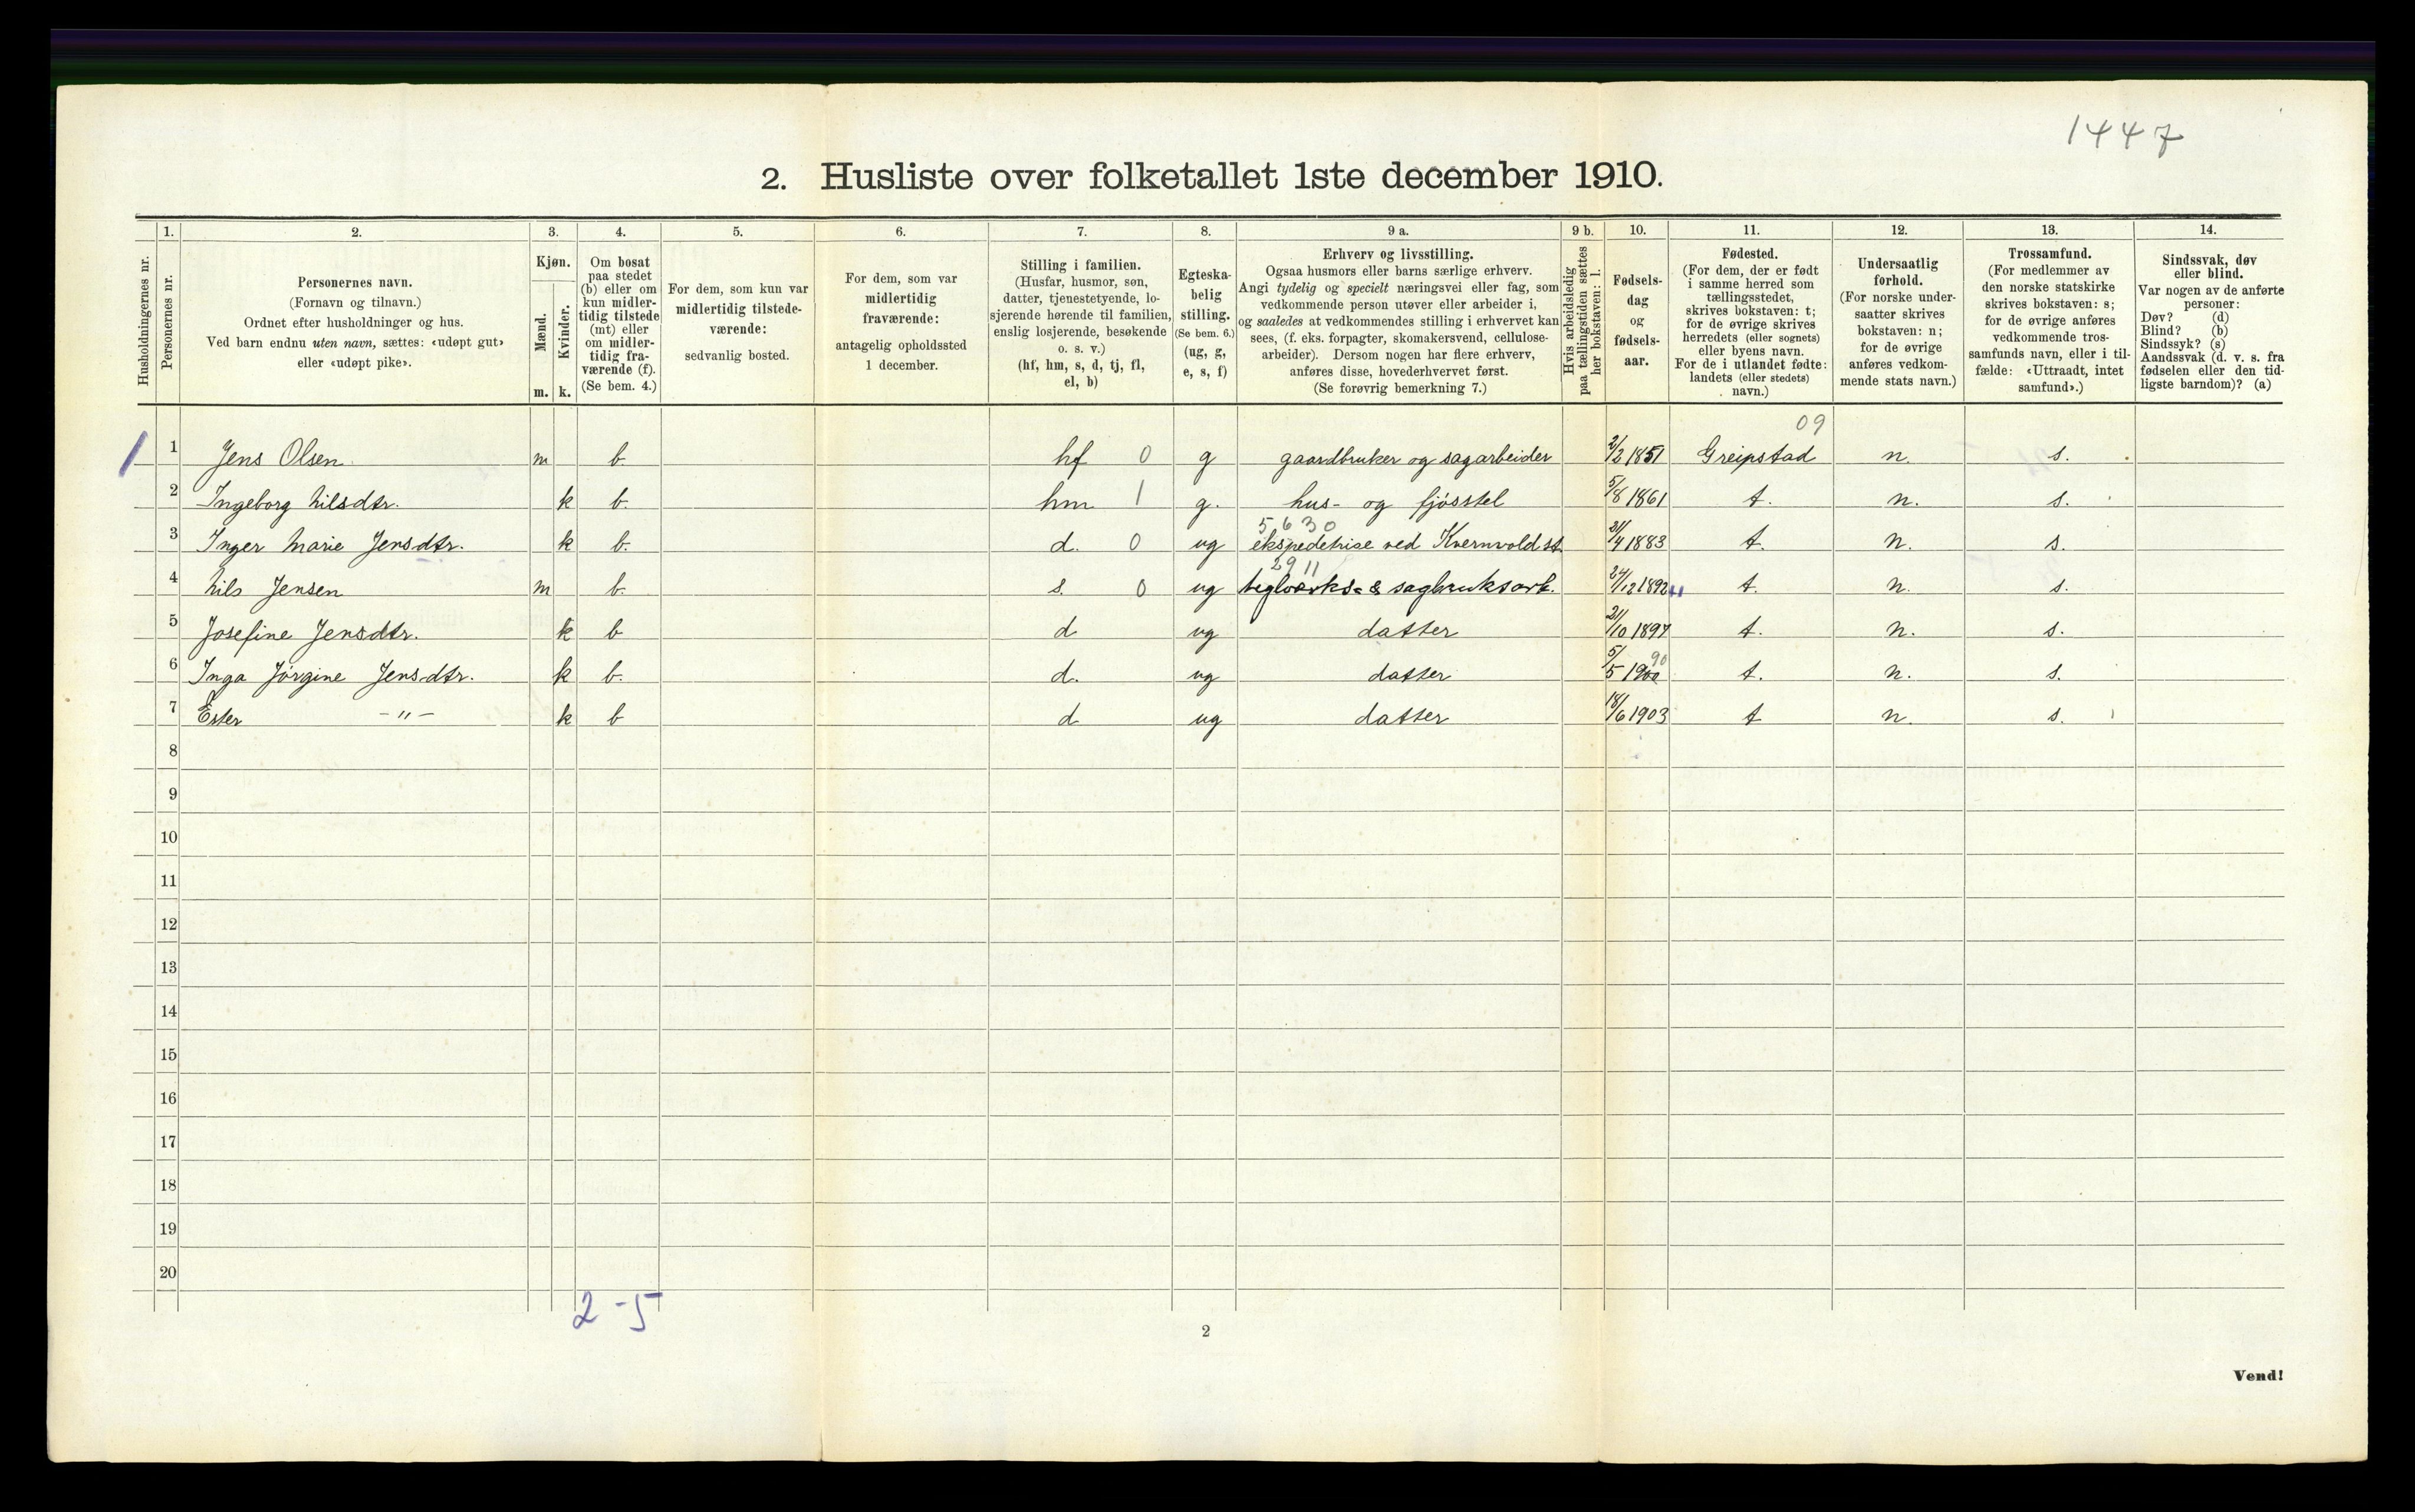 1447
2. Husliste over folketallet 1ste december 1910.
Husholdningernes nr.
1.
Personernes nr.
2.
Personernes navn.
(Fornavn og tilnavn.)
Ordnet efter husholdninger og hus.
Ved barn endnu uten navn, sættes: «udøpt gut»
eller «udøpt pike».
3.
Kjøn.
Mænd.
Kvinder.
m. k.
4.
Om bosat
paa stedet
(b) eller om
kun midler-
tidig tilstede
(mt) eller
om midler-
tidig fra-
værende (f).
(Se bem. 4.)
5.
For dem, som kun var
midlertidig tilstede-
værende:
sedvanlig bosted.
6.
For dem, som var
midlertidig
fraværende:
antagelig opholdssted
1 december.
7.
Stilling i familien.
(Husfar, husmor, søn,
datter, tjenestetyende, lo-
sjerende hørende til familien,
enslig losjerende, besøkende
o. s. v.)
(hf, hm, s, d, tj, fl,
el, b)
8.
Egteska-
belig
stilling.
(Se bem. 6.)
(ug, g,
e, s, f)
9 a.
Erhverv og livsstilling.
Ogsaa husmors eller barns særlige erhverv.
Angi tydelig og specielt næringsvei eller fag, som
vedkommende person utøver eller arbeider i,
og saaledes at vedkommendes stilling i erhvervet kan
sees, (f. eks. forpagter, skomakersvend, cellulose-
arbeider). Dersom nogen har flere erhverv,
anføres disse, hovederhvervet først.
(Se forøvrig bemerkning 7.)
9 b.
Hvis arbeidsledig
paa tællingstiden sættes
her bokstaven: l.
10.
Fødsels-
dag
og
fødsels-
aar.
11.
Fødested.
(For dem, der er født
i samme herred som
tællingsstedet,
skrives bokstaven: t;
for de øvrige skrives
herredets (eller sognets)
eller byens navn.
For de i utlandet fødte:
landets (eller stedets)
navn.)
12.
Undersaatlig
forhold.
(For norske under-
saatter skrives
bokstaven: n;
for de øvrige
anføres vedkom-
mende stats navn.)
13.
Trossamfund.
(For medlemmer av
den norske statskirke
skrives bokstaven: s;
for de øvrige anføres
vedkommende tros-
samfunds navn, eller i til-
fælde: «Uttraadt, intet
samfund».)
14.
Sindssvak, døv
eller blind.
Var nogen av de anførte
personer:
Døv? (d)
Blind? (b)
Sindssyk? (s)
Aandssvak (d. v. s. fra
fødselen eller den tid-
ligste barndom)? (a)
09
1 1 Jens Olsen m b hf 0 g gaardbruker og sagarbeider 2/2 1851 Greipstad n. s.
2 Ingeborg Nilsdtr. k b. hm 1 g. hus- og fjösstel 5/8 1861 t. n. s.
5630
3 Inger Marie Jensdtr. k b. d. 0 ug ekspedetrise ved Kvernvold st. 21/4 1883 t. n. s.
2911
4 Nils Jensen m b. s. 0 ug teglverks- & sagbruksarb. 24/12 1892 t. n. s.
5 Josefine Jensdtr. k b d ug datter 21/10 1897 t. n. s.
90
6 Inga Jörgine Jensdtr. k b. d. ug datter 5/5 1900 t. n. s.
7 Ester -"- k b d ug datter 18/6 1903 t n. s.
8
9
10
11
12
13
14
15
16
17
18
19
20
2-5
2
Vend!